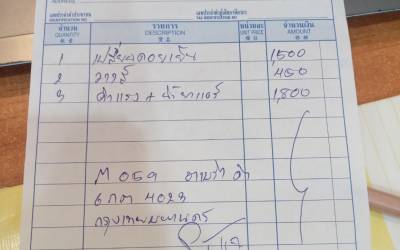 ADDRESS
เลขประจำตัวประชาชน
IDENTIFICATION NO.
เลขประจำตัวผู้เสียภาษีอากร
TAX IDENTIFICATION NO.
จำนวน รายการ หน่วยละ จำนวนเงิน
QUANTITY DESCRIPTION UNIT PRICE AMOUNT
1 1,500
2 450
3 ค่าแรง + น้ำยาแอร์ 1,800
M 059
6 กด 4023
กรุงเทพมหานคร